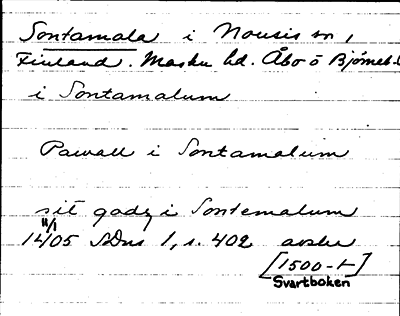 Sontamala i Nousis sn,
Finland. Masku hd. Åbo o Björneb.
i Sontamalum
Pawall i Sontamalum
sit godz i Sontemalum
11/1
1405 SDns 1, s. 402 avskr
[1500-t]
Svartboken